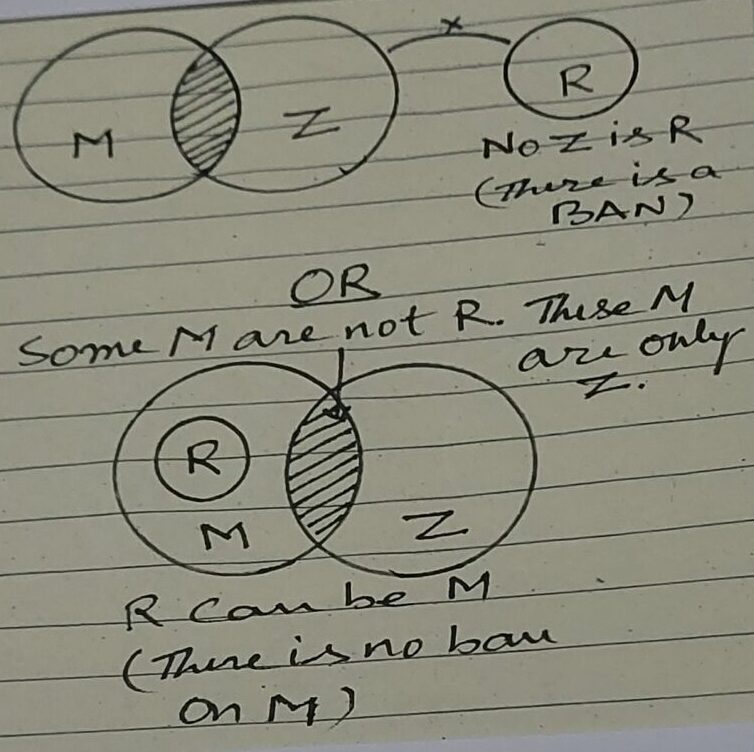 x
M
Z
R
No Z is R
(There is a
BAN)
OR
Some M are not R. These M
are only
Z.
R
M
Z
R can be M
(There is no ban
on M)